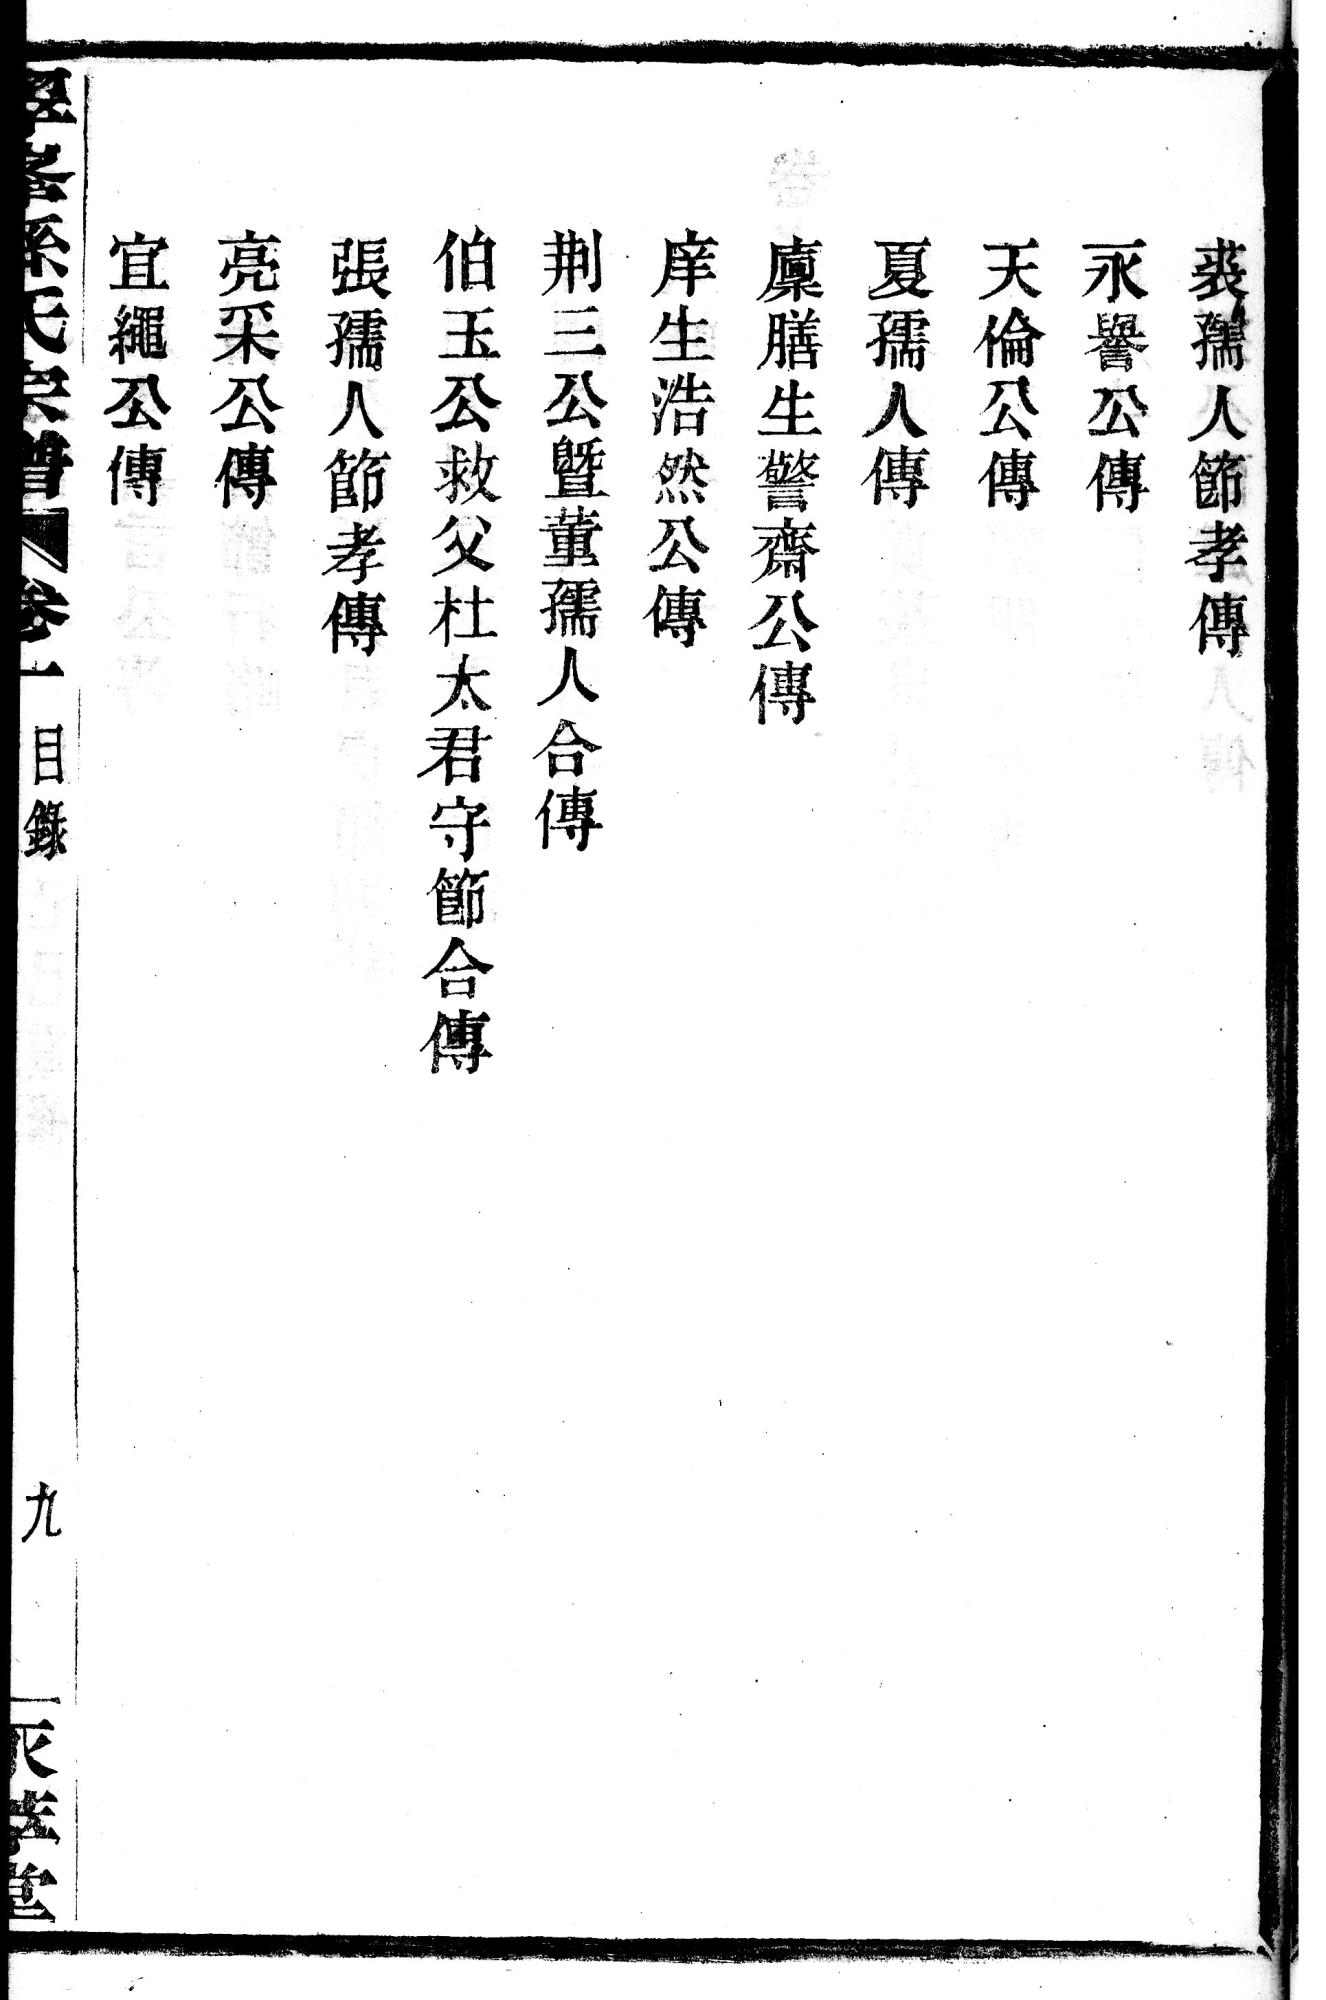 裘孺人節孝傳
永譽公傳
天倫公傳
夏孺人傳
廩膳生警齋公傳
庠生浩然公傳
荆三公曁董孺人合傳
伯玉公救父杜太君守節合傳
張孺人節孝傳
亮采公傳
宜繩公傳
孫氏宗譜 卷一 目錄 九 堂